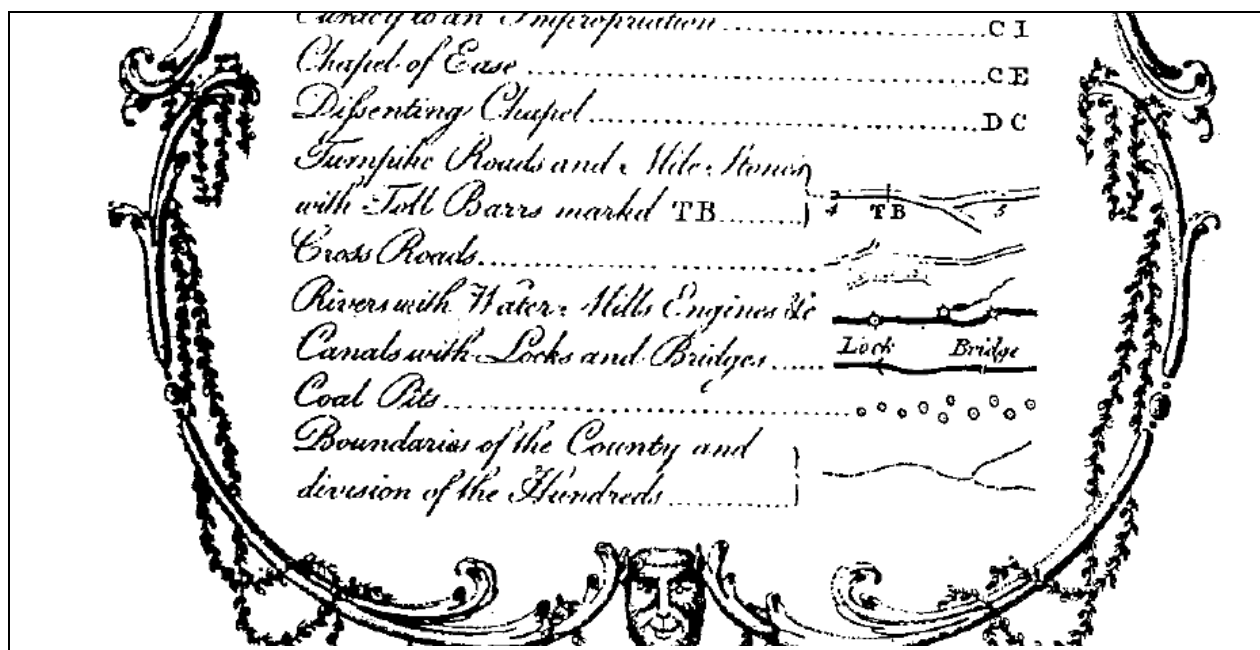 Curacy to an Impropriation C I
Chapel of Ease C E
Dissenting Chapel D C
Turnpike Roads and Mile Stones
with Toll Barrs markd TB
4 T B 5
Cross Roads
Rivers with Water Mills Engines &c
Canals with Locks and Bridges
Lock Bridge
Coal Pits
Boundaries of the County and
division of the Hundreds